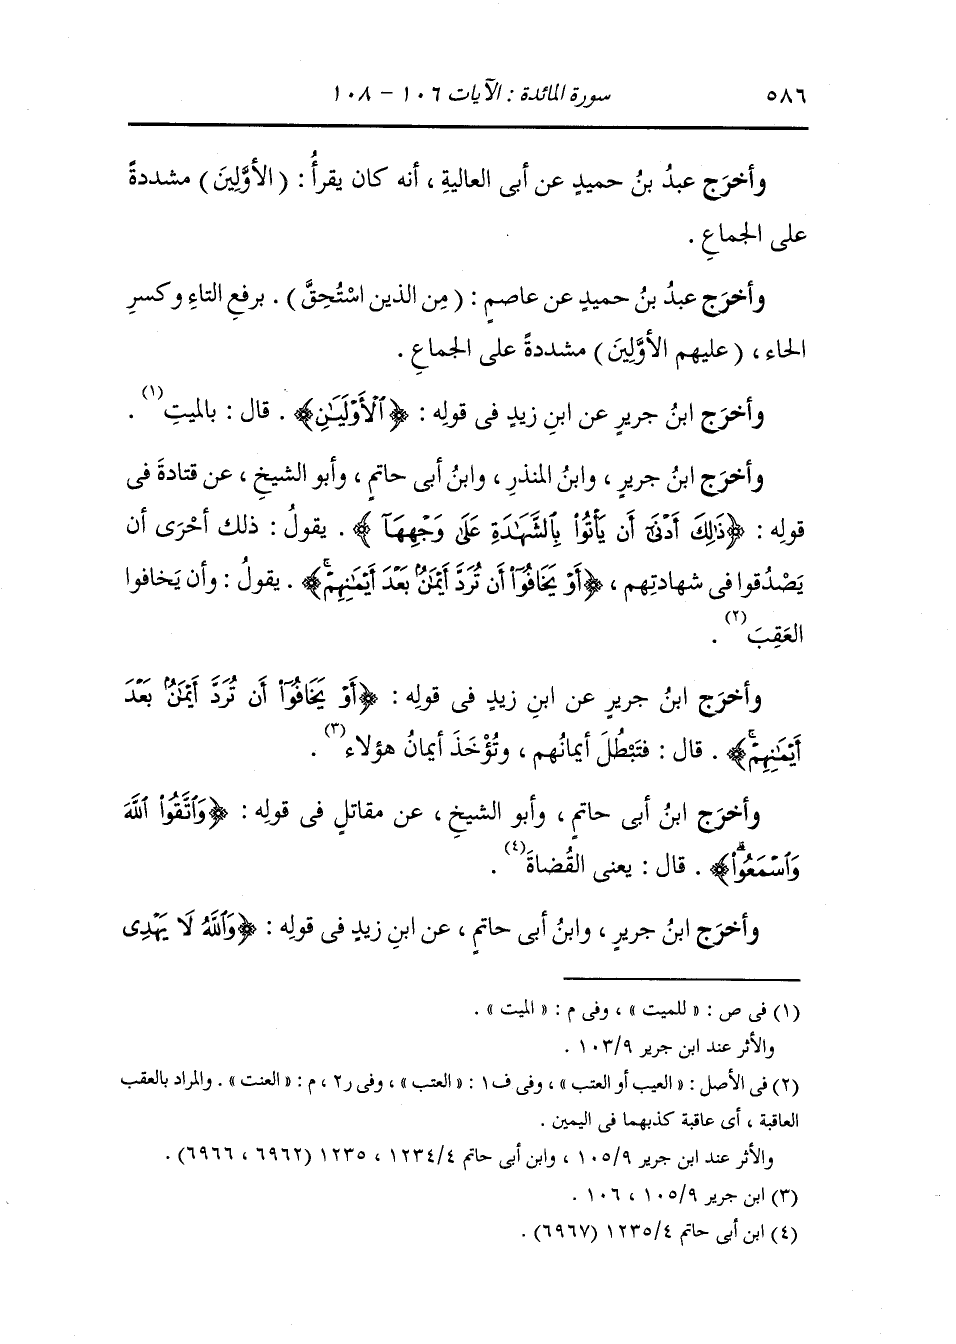 ٥٨٦ سورة المائدة : الآيات ١٠٦ - ١٠٨
وأخرَج عبدُ بنُ حميدٍ عن أبى العاليةِ ، أنه كان يقرأُ : ( الأوَّلِينَ ) مشددةً
على الجماعِ .
وأخرَج عبدُ بنُ حميدٍ عن عاصمٍ : ( مِن الذين اسْتُحِقَّ ) . برفعِ التاءِ وكسرِ
الحاء ، ( عليهم الأوَّلِينَ ) مشددةً على الجماعِ .
وأخرَج ابنُ جريرٍ عن ابنِ زيدٍ فى قولِه : ﴿ٱلْأَوْلَيَـٰنِ﴾ . قال : بالميتِ(١) .
وأخرَج ابنُ جريرٍ ، وابنُ المنذرِ ، وابنُ أبى حاتمٍ ، وأبو الشيخِ ، عن قتادةَ فى
قولِه : ﴿ذَٰلِكَ أَدْنَىٰٓ أَن يَأْتُوا۟ بِٱلشَّهَـٰدَةِ عَلَىٰ وَجْهِهَآ﴾ . يقولُ : ذلك أحْرَى أن
يَصْدُقوا فى شهادتِهم ، ﴿أَوْ يَخَافُوٓا۟ أَن تُرَدَّ أَيْمَـٰنٌۢ بَعْدَ أَيْمَـٰنِهِمْۗ﴾ . يقولُ : وأن يَخافوا
العَقِبَ(٢) .
وأخرَج ابنُ جريرٍ عن ابنِ زيدٍ فى قولِه : ﴿أَوْ يَخَافُوٓا۟ أَن تُرَدَّ أَيْمَـٰنٌۢ بَعْدَ
أَيْمَـٰنِهِمْۗ﴾ . قال : فتَبْطُلَ أيمانُهم ، وتُؤْخَذَ أيمانُ هؤلاء(٣) .
وأخرَج ابنُ أبى حاتمٍ ، وأبو الشيخِ ، عن مقاتلٍ فى قولِه : ﴿وَٱتَّقُوا۟ ٱللَّهَ
وَٱسْمَعُوا۟ۗ﴾ . قال : يعنى القُضاةَ(٤) .
وأخرَج ابنُ جريرٍ ، وابنُ أبى حاتمٍ ، عن ابنِ زيدٍ فى قولِه : ﴿وَٱللَّهُ لَا يَهْدِى
(١) فى ص : « للميت » ، وفى م : « الميت » .
والأثر عند ابن جرير ١٠٣/٩ .
(٢) فى الأصل : « العيب أو العتب » ، وفى ف١ : « العتب » ، وفى ر٢ ، م : « العنت » . والمراد بالعقب
العاقبة ، أى عاقبة كذبهما فى اليمين .
والأثر عند ابن جرير ١٠٥/٩ ، وابن أبى حاتم ١٢٣٤/٤ ، ١٢٣٥ (٦٩٦٢ ، ٦٩٦٦) .
(٣) ابن جرير ١٠٥/٩ ، ١٠٦ .
(٤) ابن أبى حاتم ١٢٣٥/٤ (٦٩٦٧) .